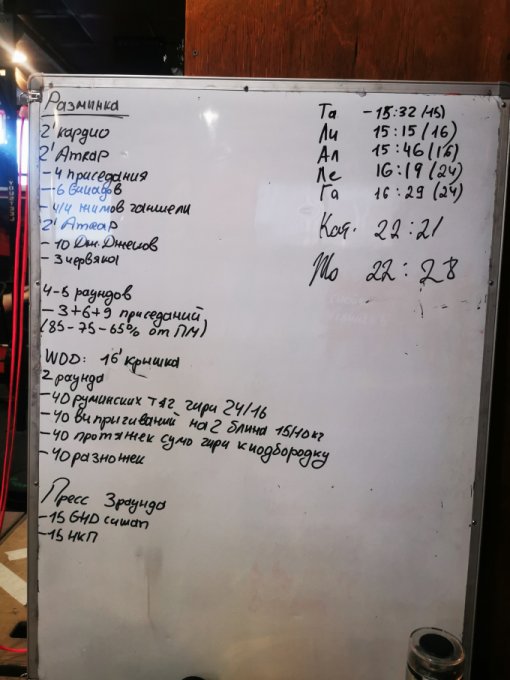 Разминка
2' кардио
2' Аткар
- 4 приседания
- 6 выпадов
- 4/4 жимов гантели
2' Аткар
- 10 Дж. Джеков
- 3 червяка
4-5 раундов
- 3+6+9 приседаний
(85-75-65% от ПМ)
WOD: 16' крышка
2 раунда
- 40 румынских тяг гири 24/16
- 40 выпригиваний на 2 блина 15/10 кг
- 40 протяжек сумо гири к подбородку
- 40 разножек
Пресс 3 раунда
- 15 GHD ситап
- 15 НКП
Та - 15:32 (15)
Ли 15:15 (16)
Ал 15:46 (16)
Ле 16:19 (24)
Га 16:29 (24)
Кат. 22:21
22:28